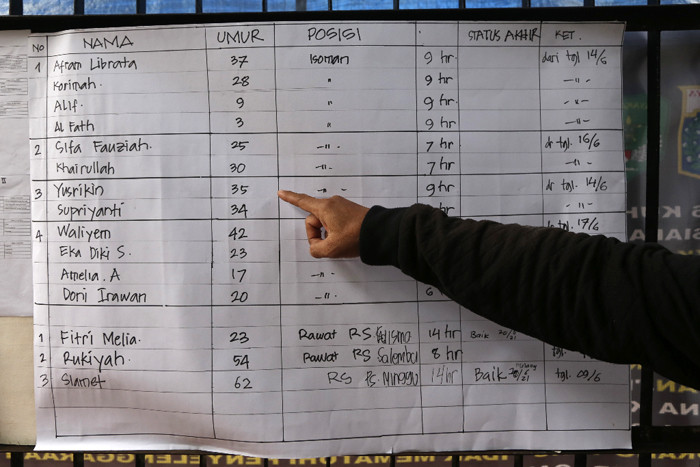 NO NAMA UMUR POSISI STATUS AKHIR KET.
1 Afram Librata 37 Isoman 9 hr dari tgl 14/6
Korimah. 28 " 9 hr -"-
Alif. 9 " 9 hr. -"-
Al Fath 3 " 9 hr -"-
2 Sifa Fauziah. 25 -"- 7 hr dr tgl. 16/6
Khairullah 30 -"- 7 hr -"-
3 Yusrikin 35 -"- 9 hr dr tgl. 14/6
Supriyanti 34 hr -"-
4 Waliyem 42 tgl. 17/6
Eka Diki S. 23
Amelia. A 17 -"-
Doni Irawan 20 -"- 6
1 Fitri Melia. 23 Rawat RS 14 hr Baik
2 Rukiyah. 54 Rawat RS Salemba 8 hr tgl.
3 Slamet 62 RS Ps. Minggu 14 hr Baik tgl. 09/6